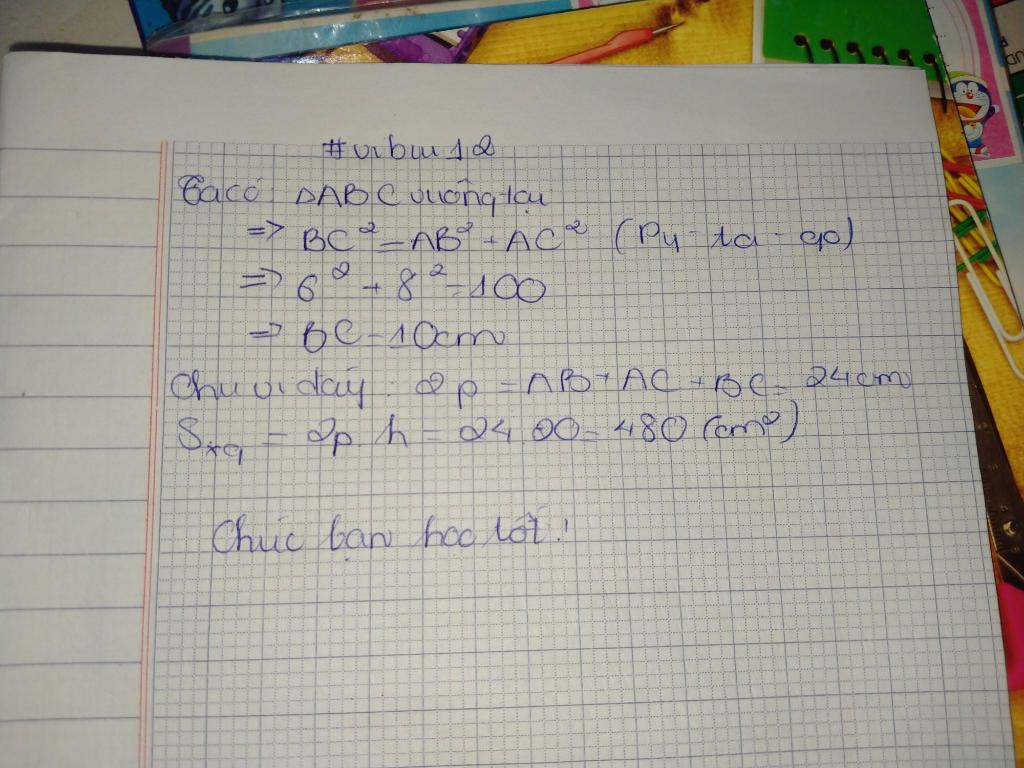 #vibui12
Ta có: ΔABC vuông tại
=> BC² = AB² + AC² (Py - ta - go)
=> 6² + 8² = 100
=> BC = 10cm
Chu vi đáy: 2p = AB + AC + BC = 24 cm
Sxq = 2p.h = 24.20 = 480 (cm²)
Chúc bạn học tốt!